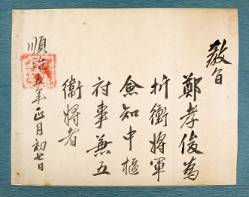 敎旨
鄭孝俊爲
折衝將軍
僉知中樞
府事兼五
衛將者
順治五年正月初七日